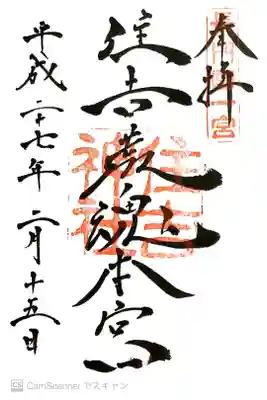 奉拝
住吉荒魂本宮
住吉神社
平成二十七年二月十五日
CS CamScanner でスキャン